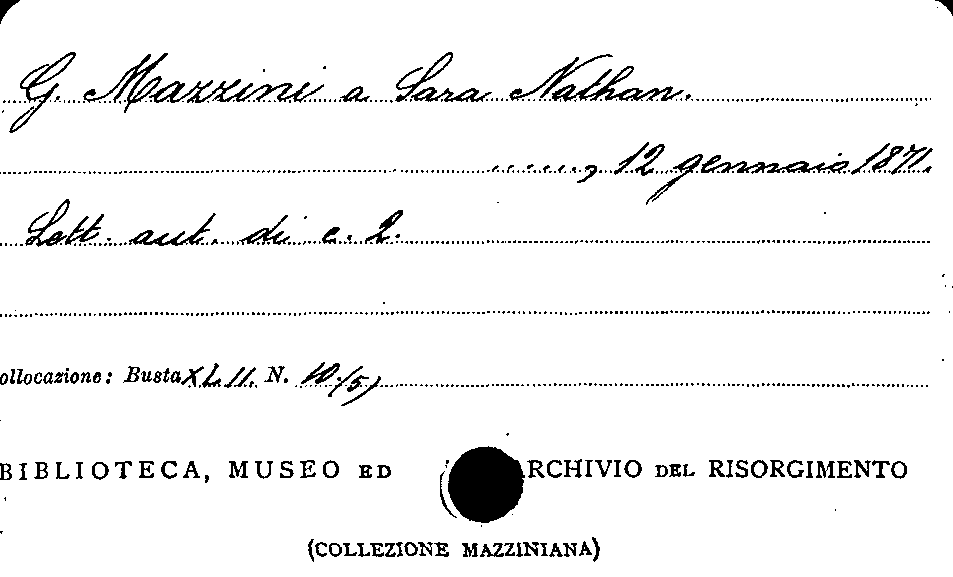 G. Mazzini a Sara Nathan.
......, 12 gennaio 1871.
Lett. aut. di c. 2.
ollocazione: Busta XLII. N. 10/5)
BIBLIOTECA, MUSEO ED RCHIVIO DEL RISORGIMENTO
(COLLEZIONE MAZZINIANA)